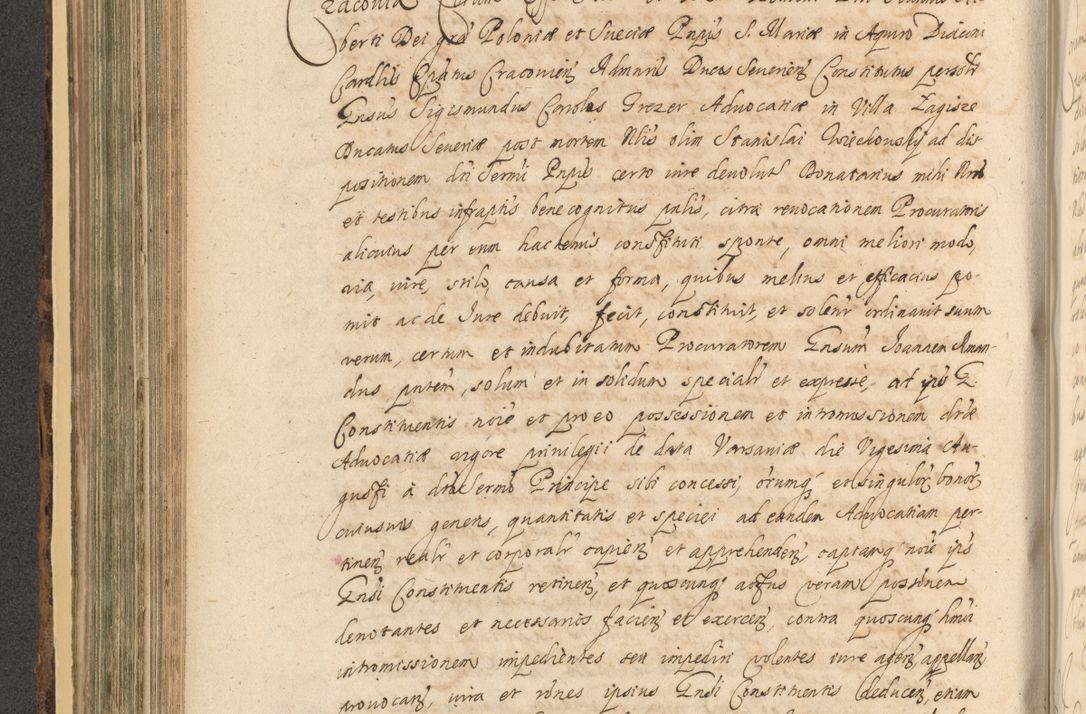 berti Dei grã Poloniæ et Sueciæ Pnpis S. Mariæ in Aquiro Diaconi
Cardlis Epatus Cracovien Admnris Ducis Severien Constitutus personlr
Gnsus Sigismundus Carolus Grezer Advocatiæ in Villa Zagisze
Ducatus Severiæ post mortem Nlis olim Stanislai Wieckowskij ad dis
positionem dni Sermi Pnpis certo iure devolut Donatarius mihi Nrio
et testibus infraptis bene cognitus palis, citra revocationem Procuratoris
alicuius per eum hactenus constituti sponte, omni meliori modo,
via, iure, stilo, causa et forma, quibus melius et efficacius po-
tuit ac de Iure debuit, fecit, constituit, et solenr ordinavit suum
verum, certum et indubitatum Procuratorem Gnsum Joannem Aman-
dus pntem, solum et in solidum specialr et expresse, ad ipsi G.
Constituentis noie et pro eo possessionem et intromissionem dictæ
Advocatiæ vigore privilegii de data Varsaviæ die Vigesima Au-
gusti à dto Sermo Principe sibi concessi, oium et singulor bonor
cuiusvis generis, quantitatis et speciei ad eandem Advocatiam per-
tinen realr et corporalr capien et apprehenden captamq noie ipsi
Gnsi Constituentis retinen, et quoscunq actus veram possnem
denotantes et necessarios facien et exercen, contra quoscunq hmoi
intromissionem impedientes seu impedire volentes iure agen, appellan
provocan, iura et rones ipsius Gnsi Constituentis deducen, etiam